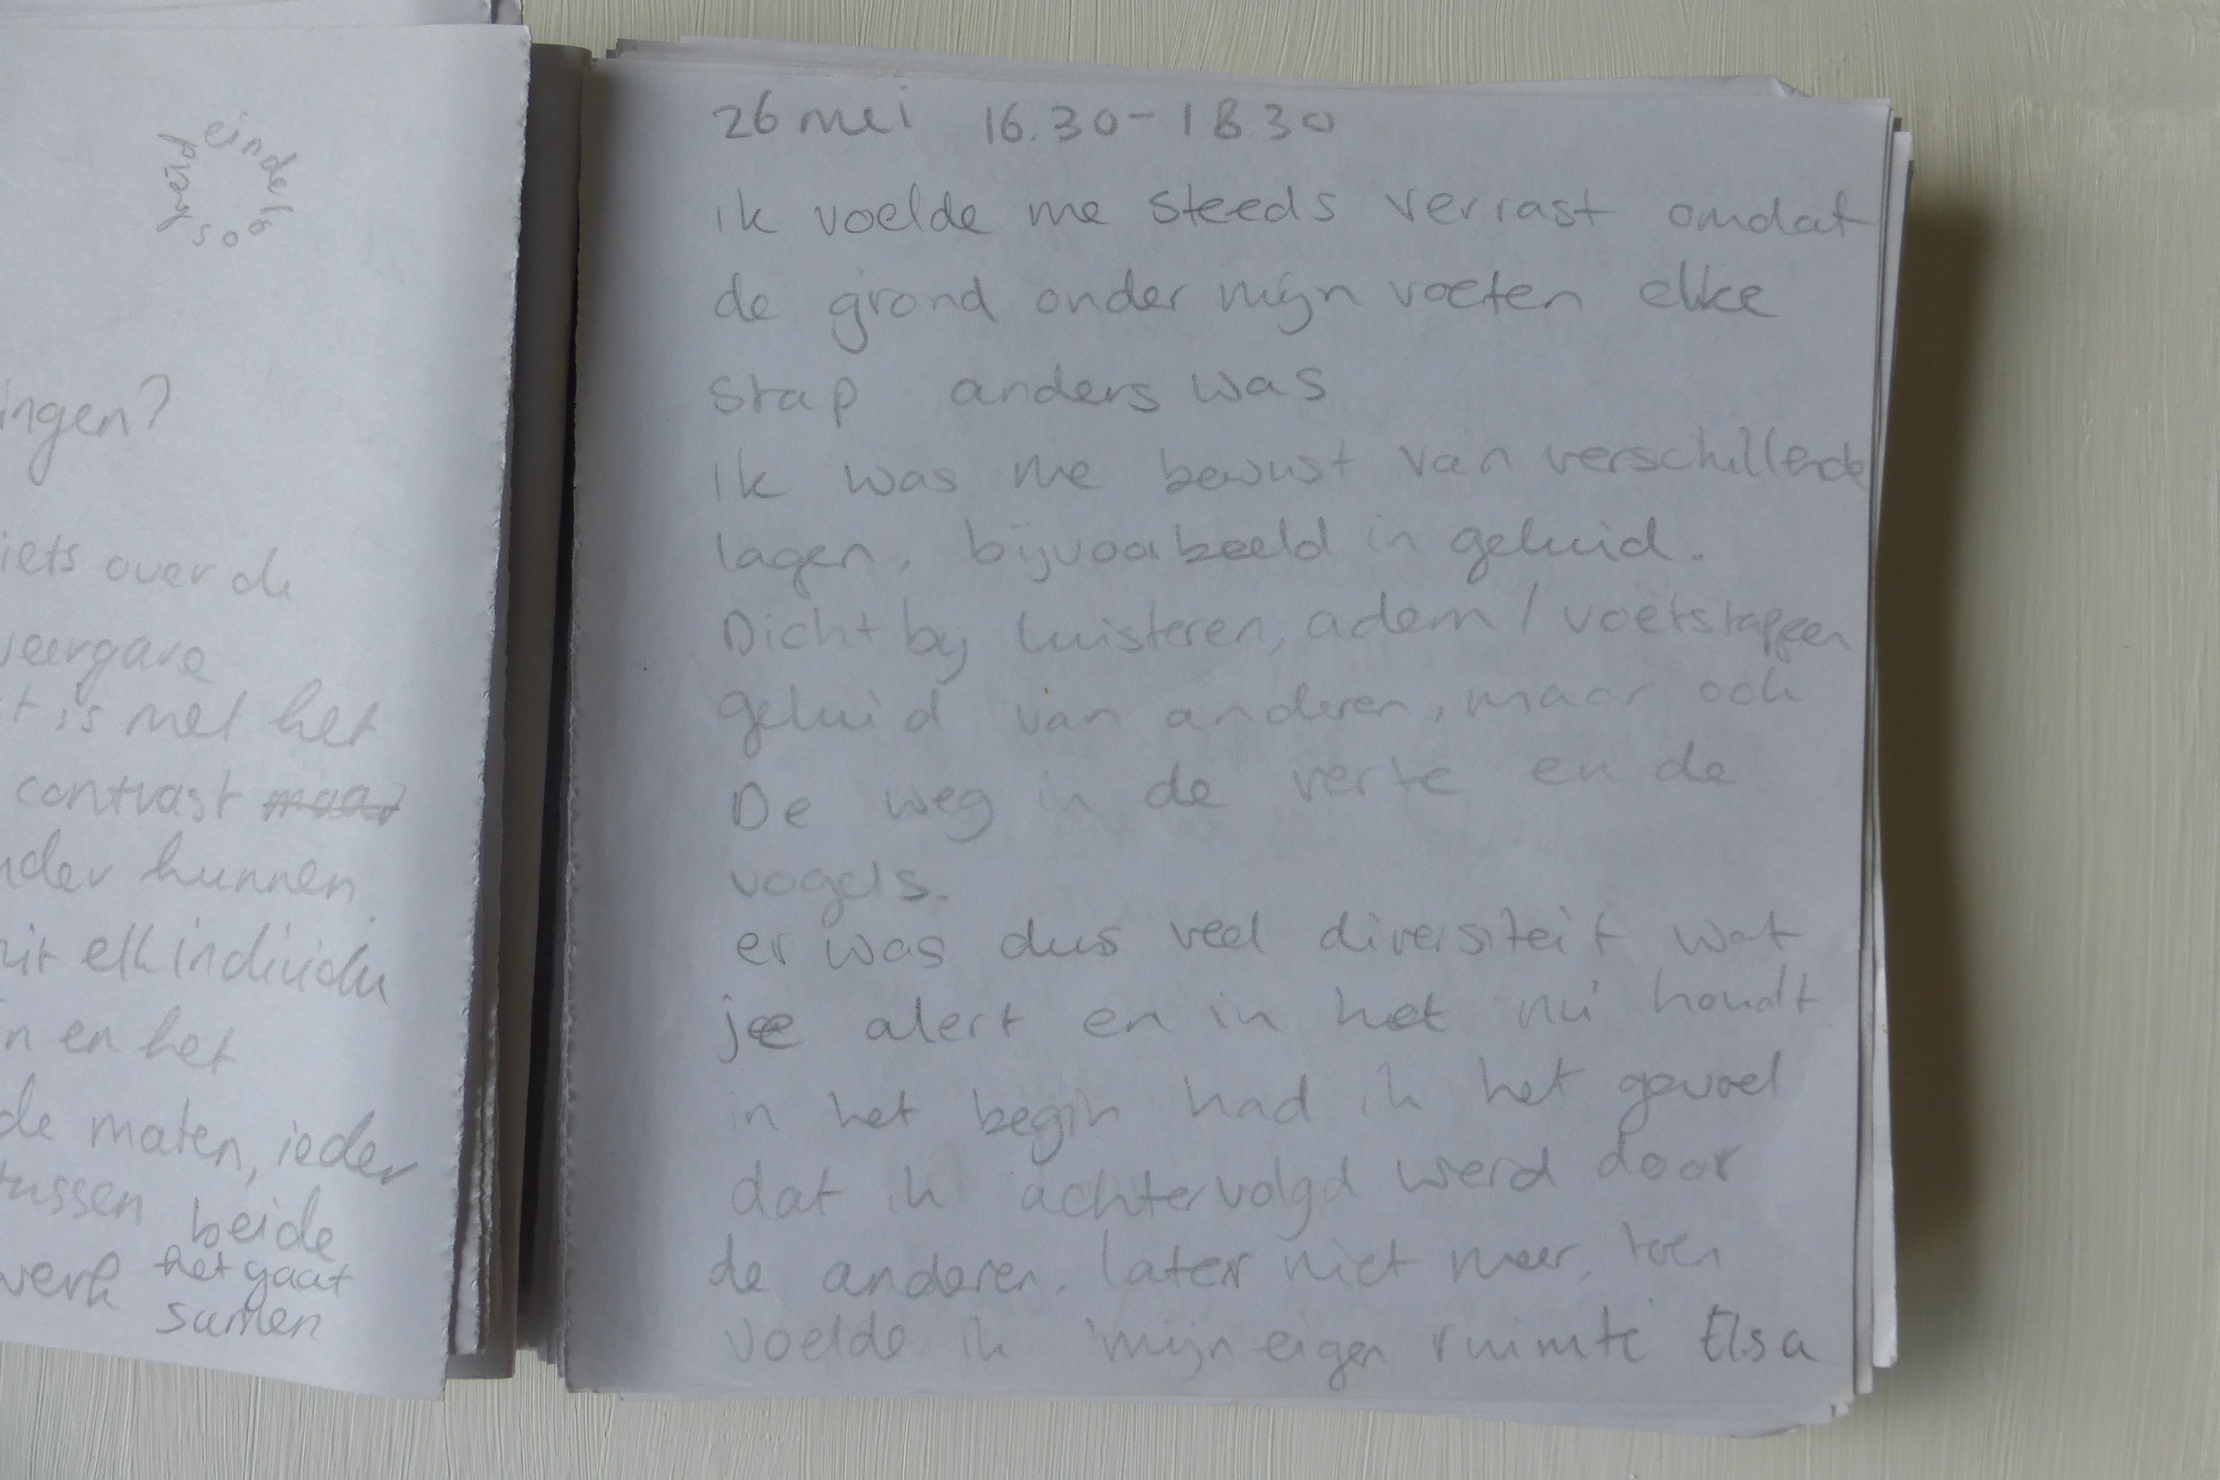 eindeloosheid
ingen?
iets over de
weergave
t is met het
contrast maar
nder kunnen.
uit elk individu
n en het
de maten, ieder
tussen beide
werk het gaat
samen
26 mei 16.30-18.30
ik voelde me steeds verrast omdat
de grond onder mijn voeten elke
stap anders was
ik was me bewust van verschillende
lagen, bijvoorbeeld in geluid.
Dicht bij luisteren, adem / voetstappen
geluid van anderen, maar ook
De weg in de verte en de
vogels.
er was dus veel diversiteit wat
je alert en in het 'nu' houdt
in het begin had ik het gevoel
dat ik achtervolgd werd door
de anderen. later niet meer, toen
voelde ik 'mijn eigen ruimte' Elsa